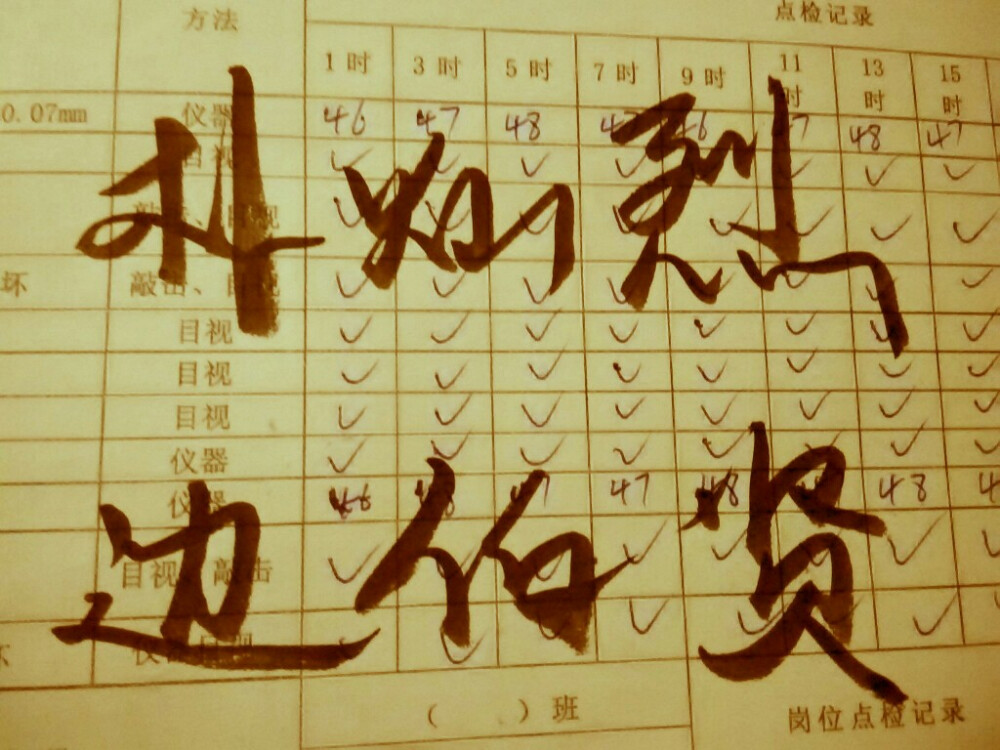 方法 点检记录
1时 3时 5时 7时 9时 11时 13时 15时
0.07mm 仪器 46 47 48 48 47
目视
朴灿烈
敲击、目视
坏 敲击、目视
目视
目视
目视
仪器
仪器 46 47 48 48
边伯贤
目视、敲击
( )班
岗位点检记录